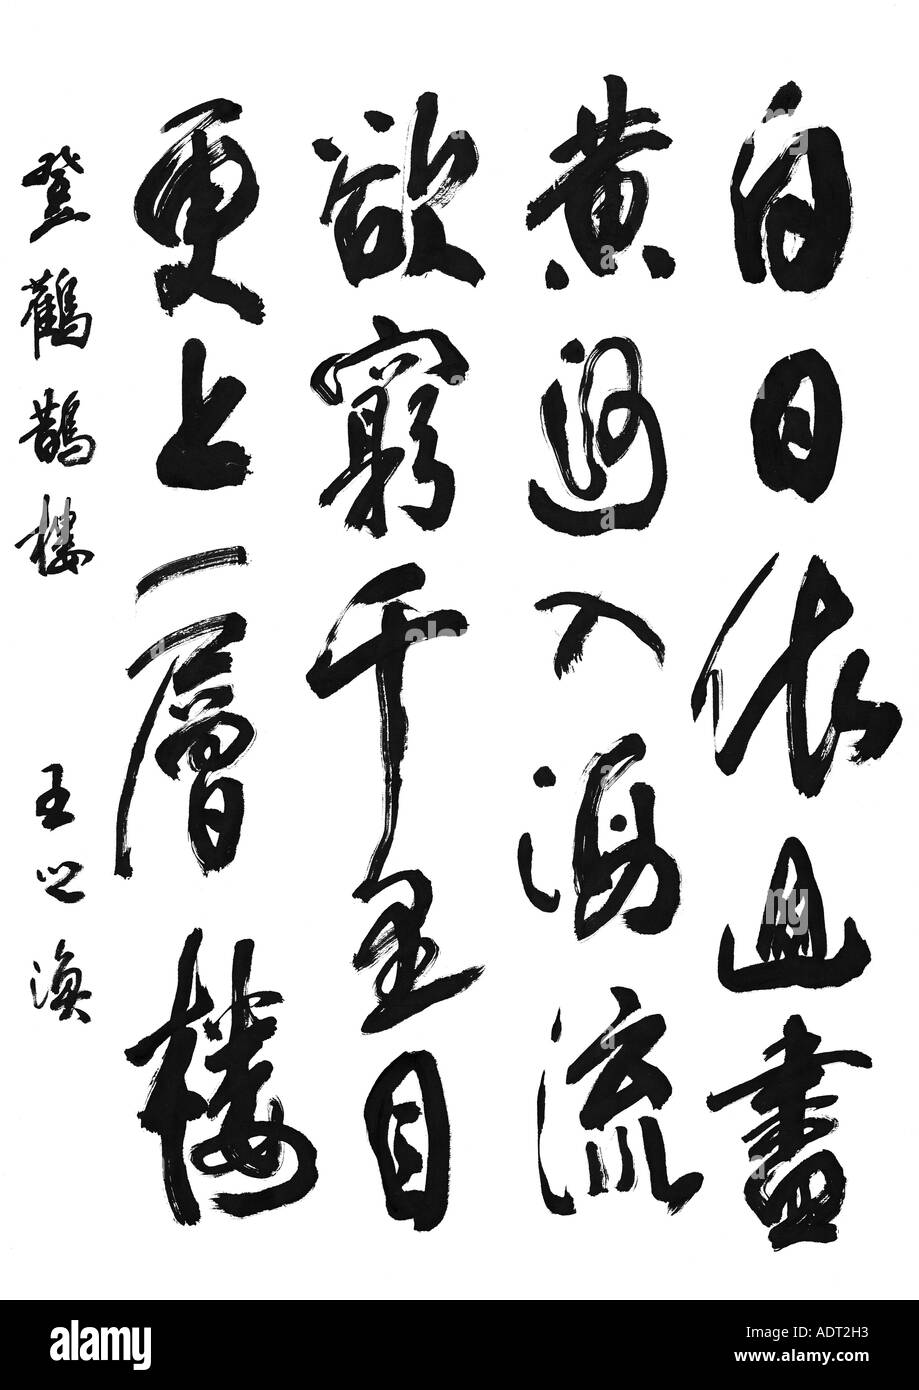 白日依山盡
黄河入海流
欲窮千里目
更上一層楼
登鸛鵲楼 王之渙
alamy
Image ID: ADT2H3
www.alamy.com